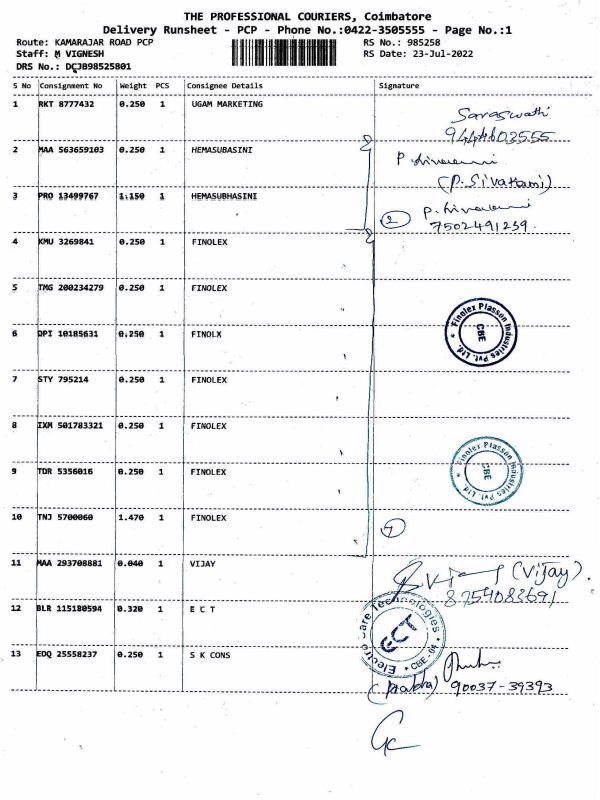 THE PROFESSIONAL COURIERS, Coimbatore
Delivery Runsheet - PCP - Phone No.:0422-3505555 - Page No.:1
Route: KAMARAJAR ROAD PCP RS No.: 985258
Staff: M VIGNESH RS Date: 23-Jul-2022
DRS No.: DCJB98525801
S No Consignment No Weight PCS Consignee Details Signature
1 RKT 8777432 0.250 1 UGAM MARKETING
Saraswathi
2 MAA 563659103 0.250 1 HEMASUBASINI
(P. Sivakami)
3 PRO 13499767 1.150 1 HEMASUBHASINI
2
7502491239.
4 KMU 3269841 0.250 1 FINOLEX
5 TMG 200234279 0.250 1 FINOLEX
Finolex Plasson Industries Pvt. Ltd. * CBE
6 OPI 10185631 0.250 1 FINOLX
7 STY 795214 0.250 1 FINOLEX
8 IXM 501783321 0.250 1 FINOLEX
Finolex Plasson Industries Pvt. Ltd. * CBE
9 TDR 5356016 0.250 1 FINOLEX
10 TNJ 5700060 1.470 1 FINOLEX
7
11 MAA 293708881 0.040 1 VIJAY
(Vijay).
8754083691
12 BLR 115180594 0.320 1 E C T
Electro Care Technologies * CBE
ECT
13 EDQ 25558237 0.250 1 S K CONS
(Prabha) 90037-39393